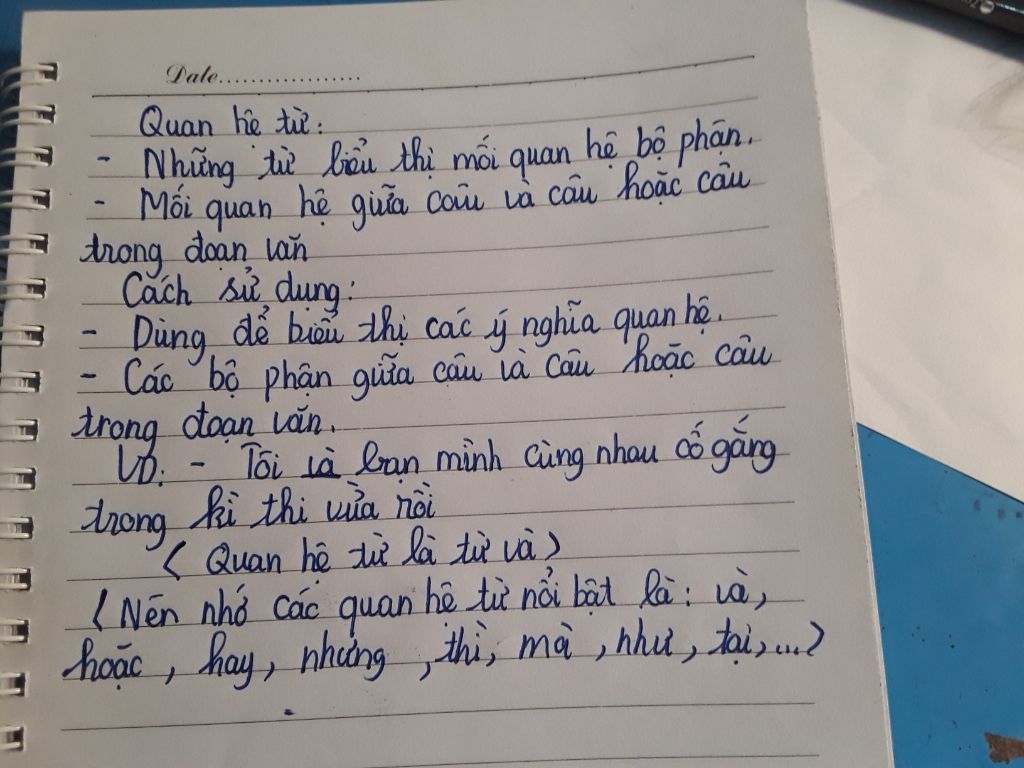 Date..................
Quan hệ từ:
- Những từ biểu thị mối quan hệ bộ phận.
- Mối quan hệ giữa câu và câu hoặc câu
trong đoạn văn
Cách sử dụng:
- Dùng để biểu thị các ý nghĩa quan hệ.
- Các bộ phận giữa câu và câu hoặc câu
trong đoạn văn.
VD: - Tôi và bạn mình cùng nhau cố gắng
trong kì thi vừa rồi
( Quan hệ từ là từ và )
( Nên nhớ các quan hệ từ nổi bật là: và,
hoặc, hay, nhưng, thì, mà, như, tại,...)